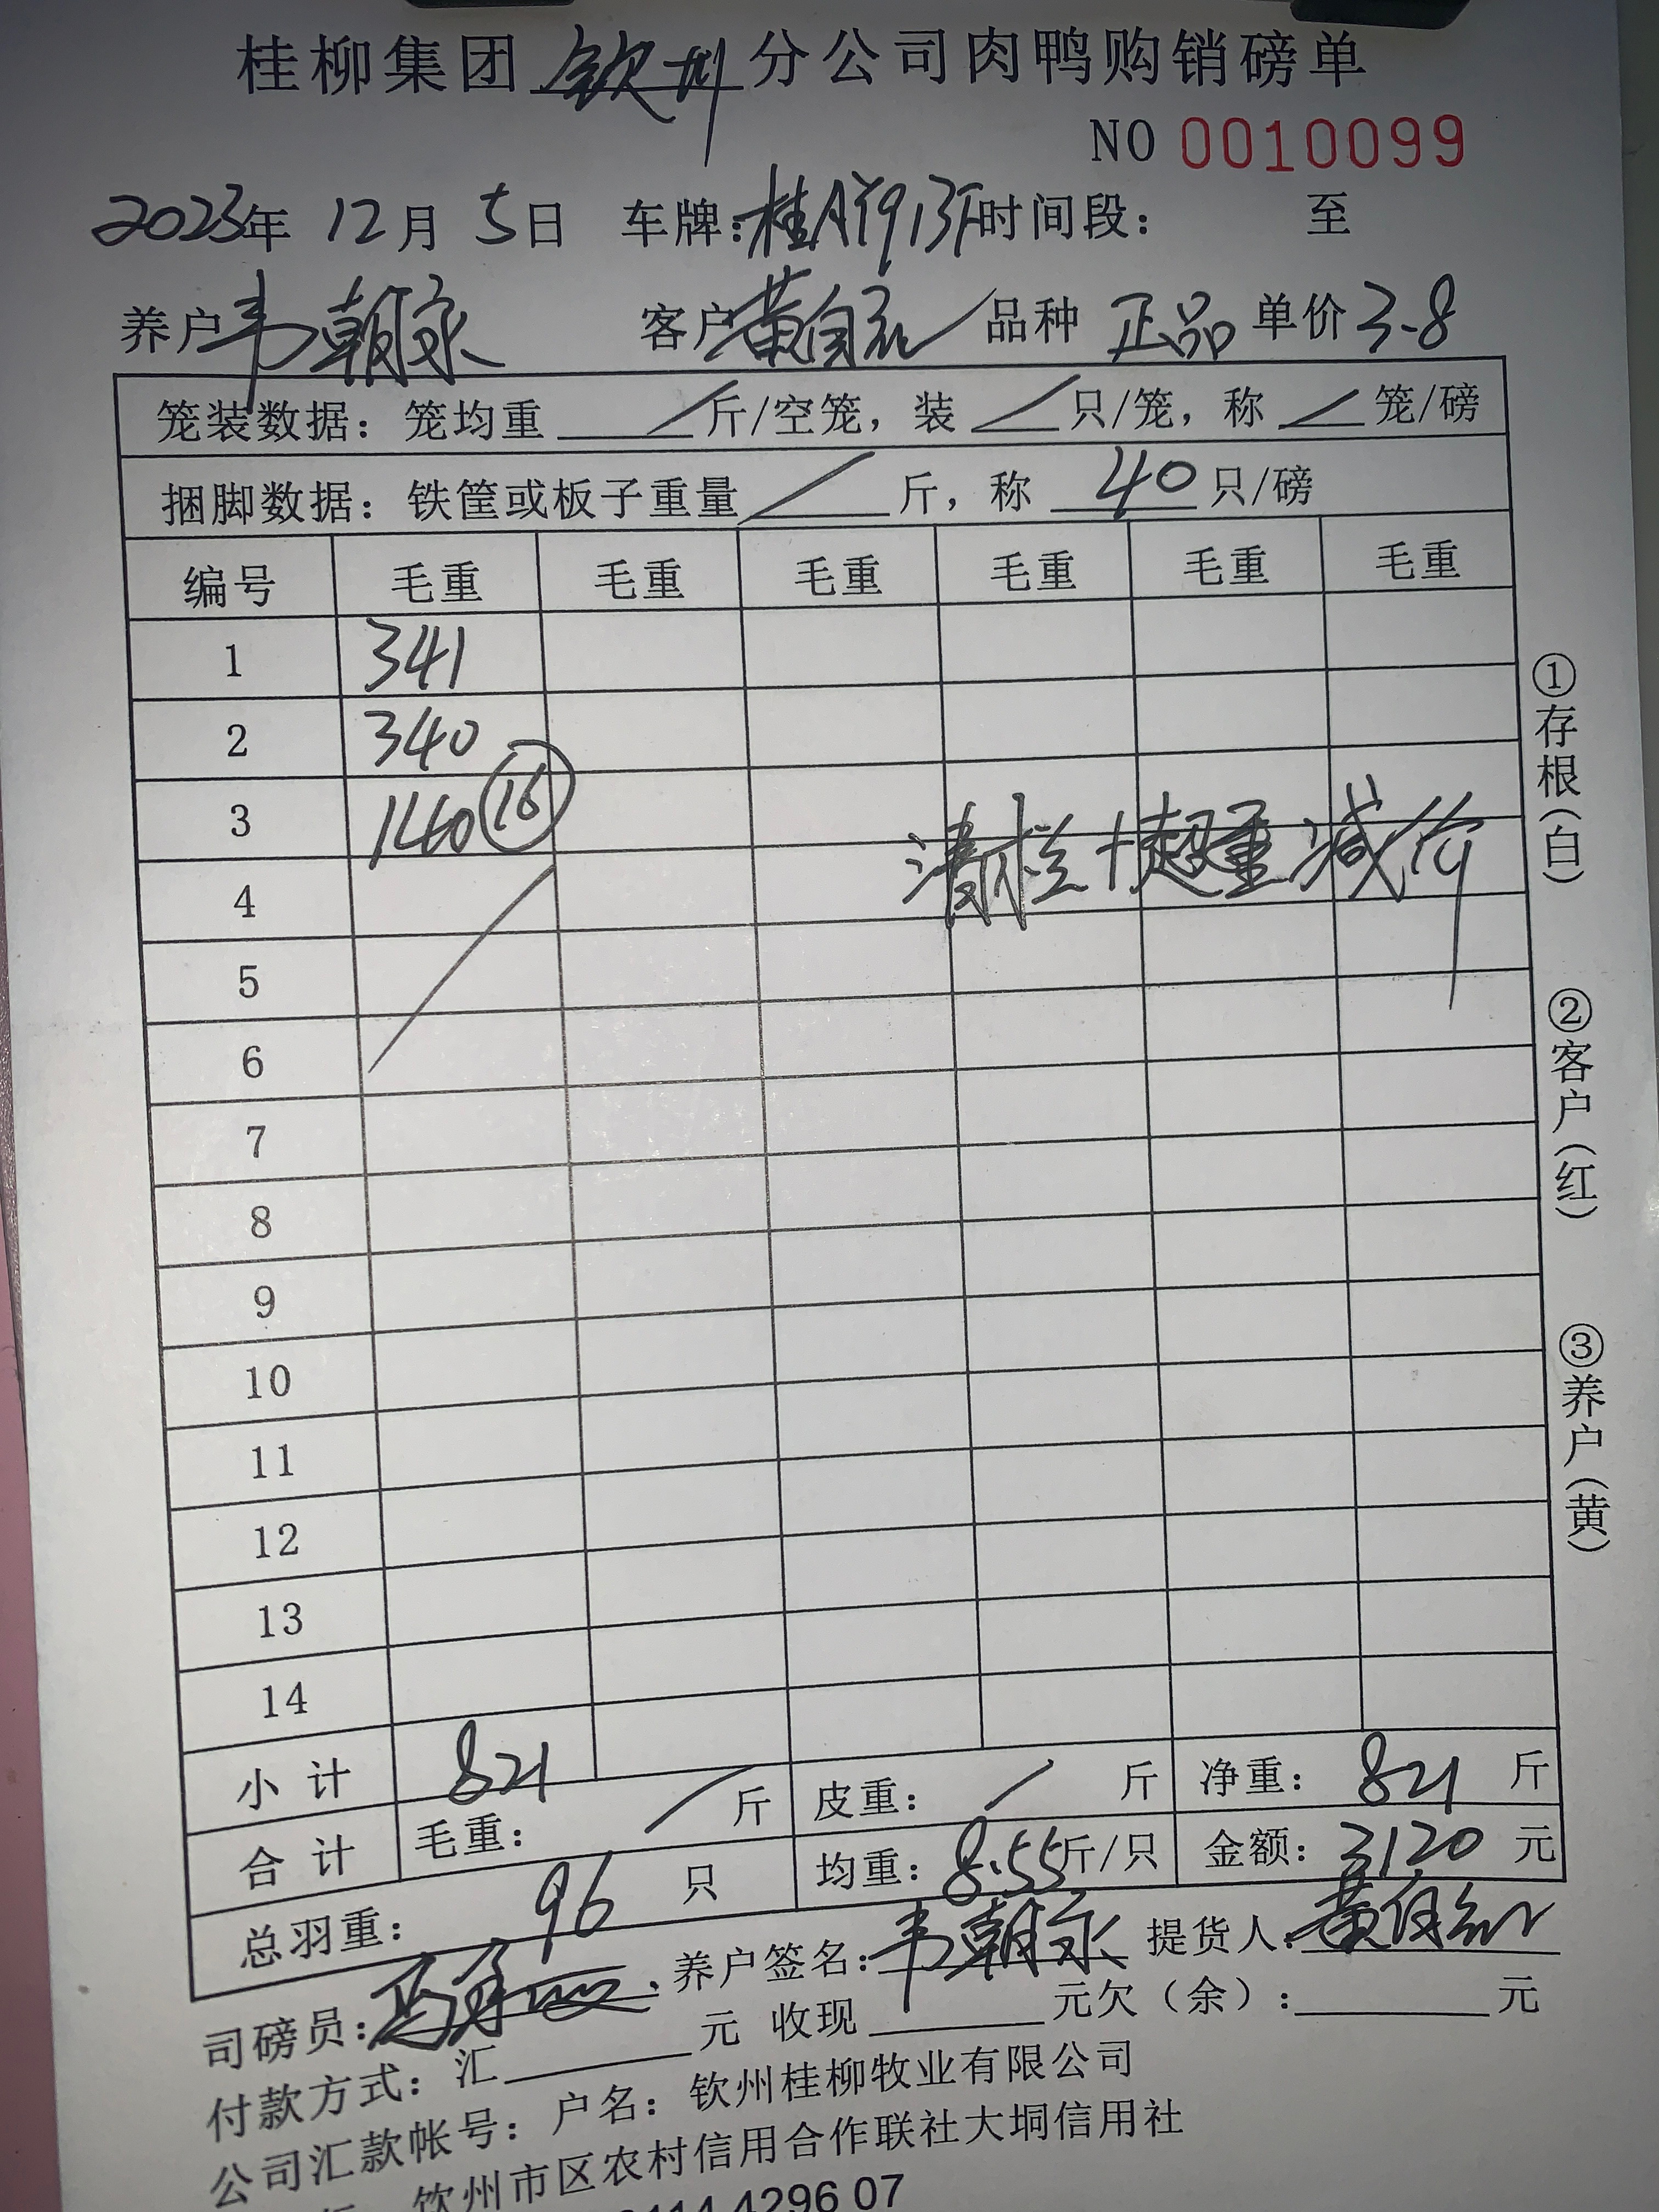 桂柳集团 钦州 分公司肉鸭购销磅单
NO 0010099
2023年 12月 5日 车牌:桂AY913F 时间段: 至
养户 韦朝永 客户 黄自 品种 正品 单价 3-8
笼装数据: 笼均重 / 斤/空笼, 装 / 只/笼, 称 / 笼/磅
捆脚数据: 铁筐或板子重量 / 斤, 称 40 只/磅
编号 毛重 毛重 毛重 毛重 毛重 毛重
1 341
2 340
3 140 16
清栏+超重减价
4
5
6
7
8
9
10
11
12
13
14
小计 821
合计 毛重: / 斤 皮重: / 斤 净重: 821 斤
总羽重: 96 只 均重: 8.55斤/只 金额: 3120 元
司磅员: 养户签名: 韦朝永 提货人: 黄自
付款方式: 汇 元 收现 元欠(余): 元
公司汇款帐号: 户名: 钦州桂柳牧业有限公司
钦州市区农村信用合作联社大垌信用社
4296 07
①存根(白)
②客户(红)
③养户(黄)